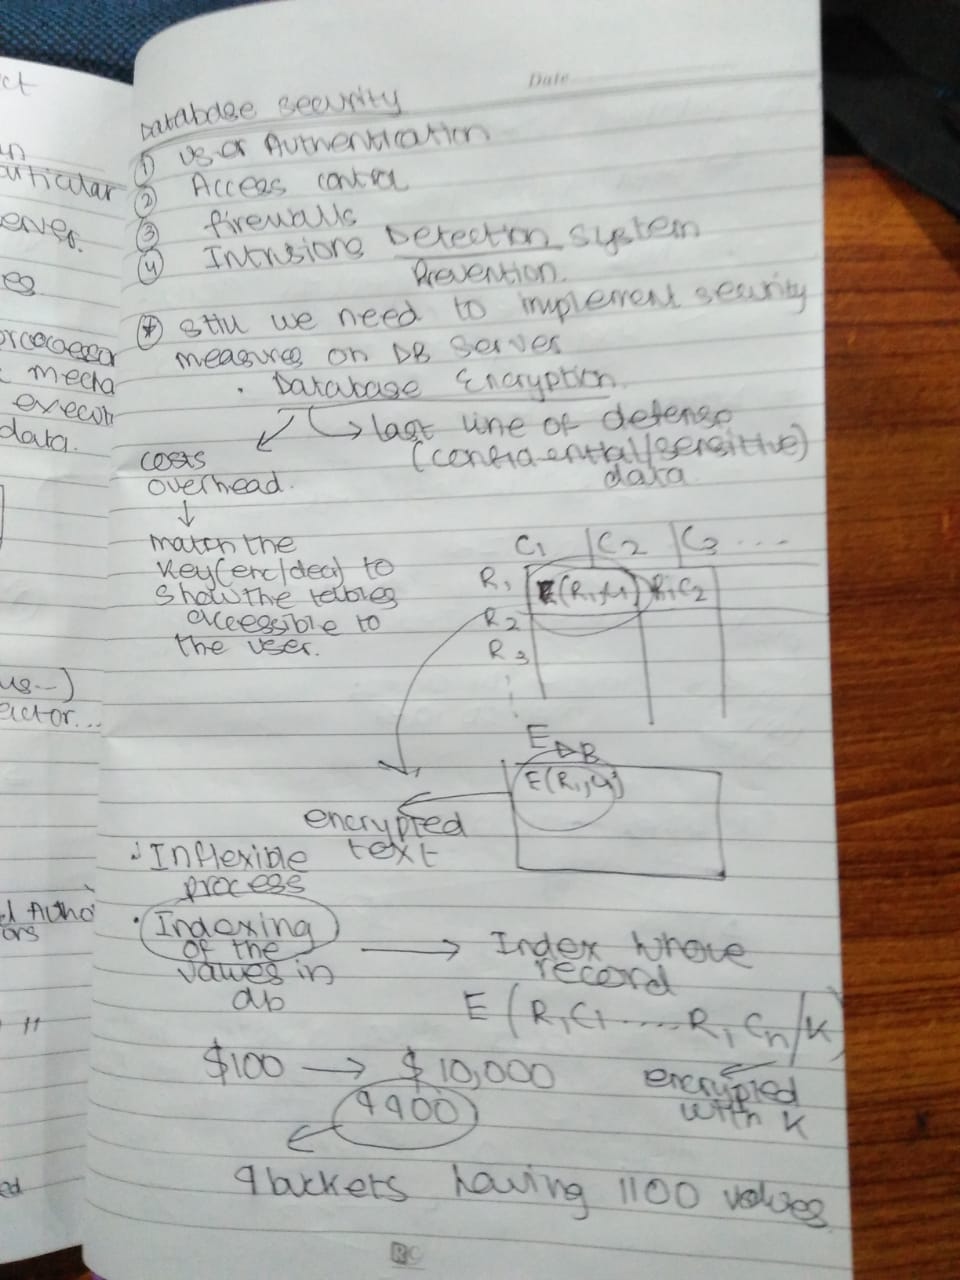 ct
an
articular
erver.
es.
processor
mecha
execut
data.
us--)
actor...
d Autho
ors
"
ed
Date
Database Security
① User Authentication
② Access control
③ firewalls
④ Intrusions Detection System
Prevention.
* Still we need to implement security
measures on DB server
· Database Encryption.
↙ ↳ last line of defense
(confidential/sensitive)
data
costs
overhead.
↓
match the
key(enc/dec) to
show the tables
accessible to
the user.
C1 | C2 | C3 ...
R1 E(R1,C1) R1C2
R2
R3
EDB
E(R1,C1)
encrypted
text
Inflexible
process
· Indexing
of the
values in
db
→ Index whole
record
E(R1C1.....R1Cn/K)
encrypted
with K
$100 → $10,000
9900
9 buckets having 1100 values
RC